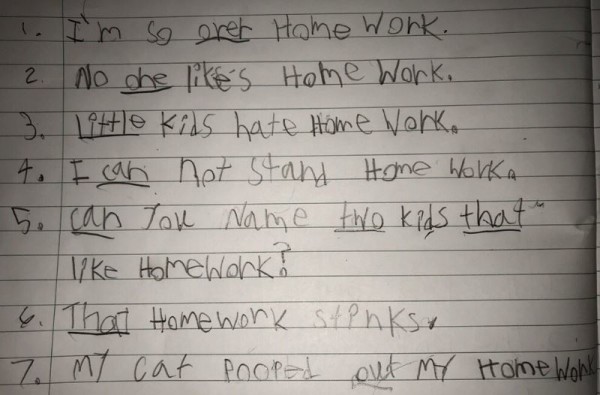 1. I'm so over Home Work.
2. No one like's Home Work.
3. Little kids hate Home Work.
4. I can not stand Home Work.
5. can You Name two kids that
like Homework?
6. That Homework stinks.
7. MY cat Pooped out MY Homework